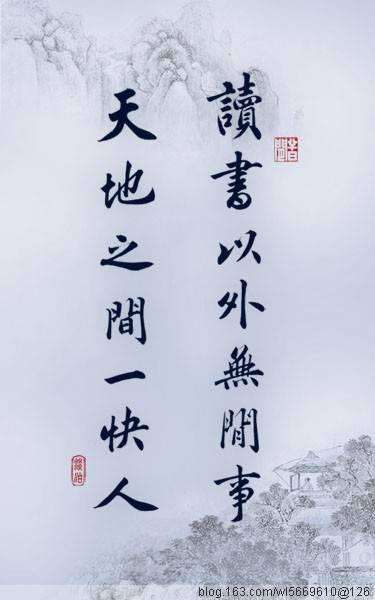 讀書以外無閒事
天地之間一快人
blog.163.com/wl5669610@126